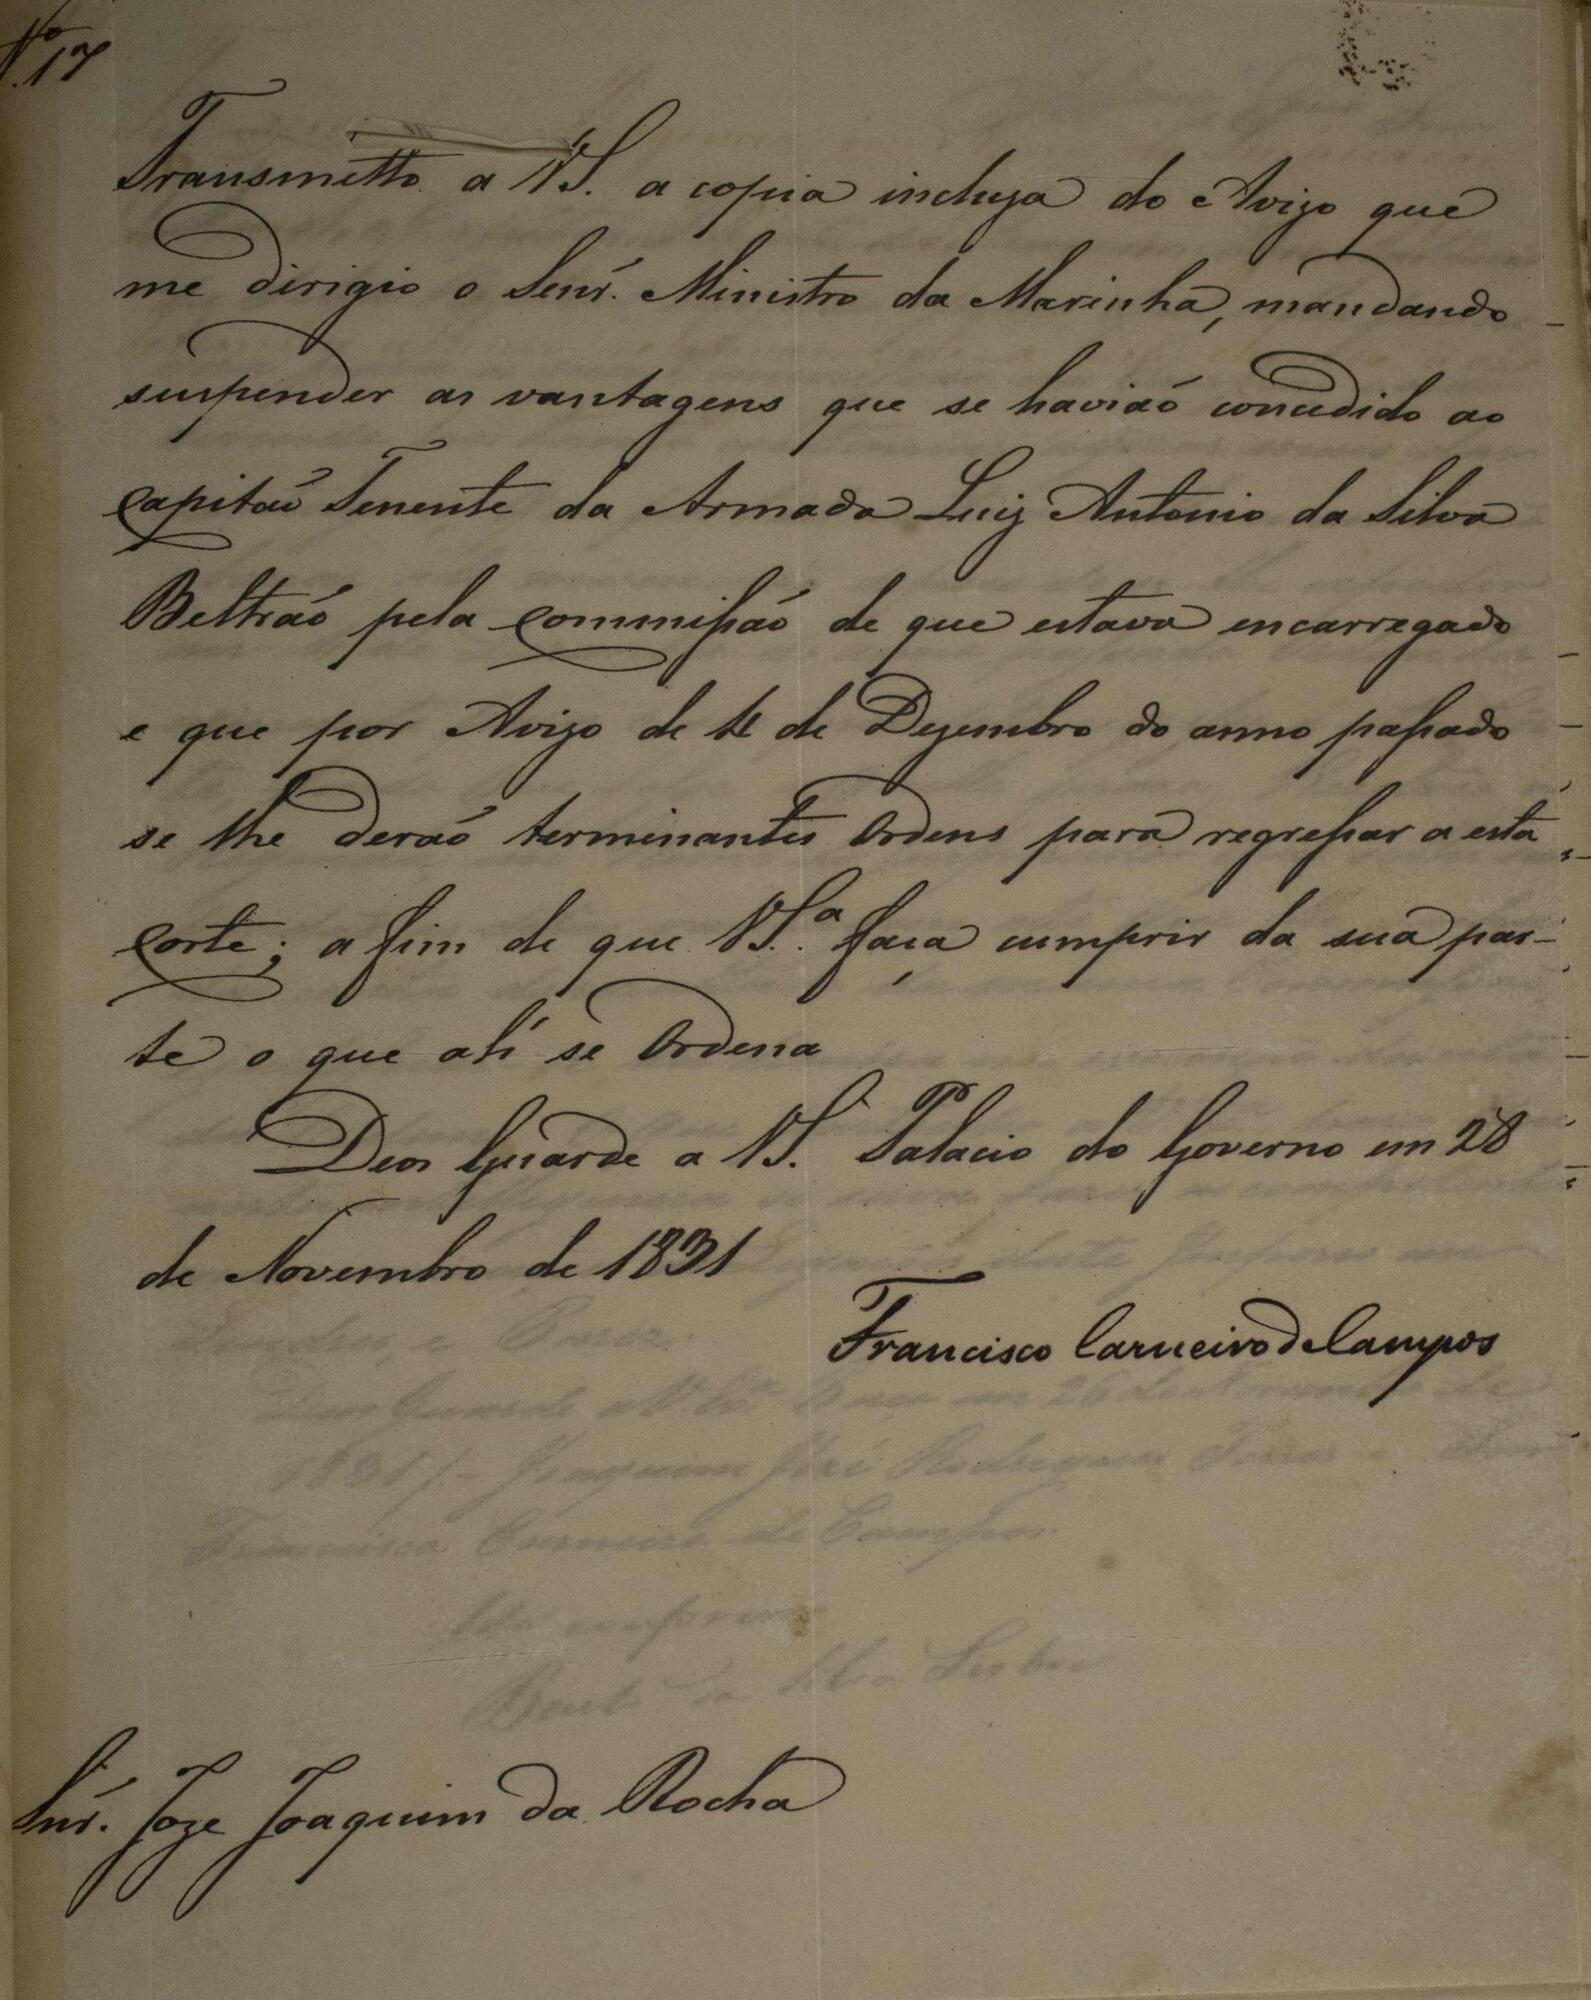 Nº 17
Transmetto a VS. a copia incluza do Avizo que
me dirigio o Senr. Ministro da Marinha, mandando
suspender as vantagens que se haviaõ concedido ao
Capitaõ Tenente da Armada Luiz Antonio da Silva
Beltraõ pela Commissaõ de que estava encarregado
e que por Avizo de de Dezembro do anno passado
se lhe deraõ terminantes Ordens para regressar a esta
Corte; a fim de que VS.ª faça cumprir da sua par-
te o que ahi se Ordena
Deos Guarde a VS. Palacio do Governo em 28
de Novembro de 1831
Francisco Carneiro de Campos
Snr. Joze Joaquim da Rocha